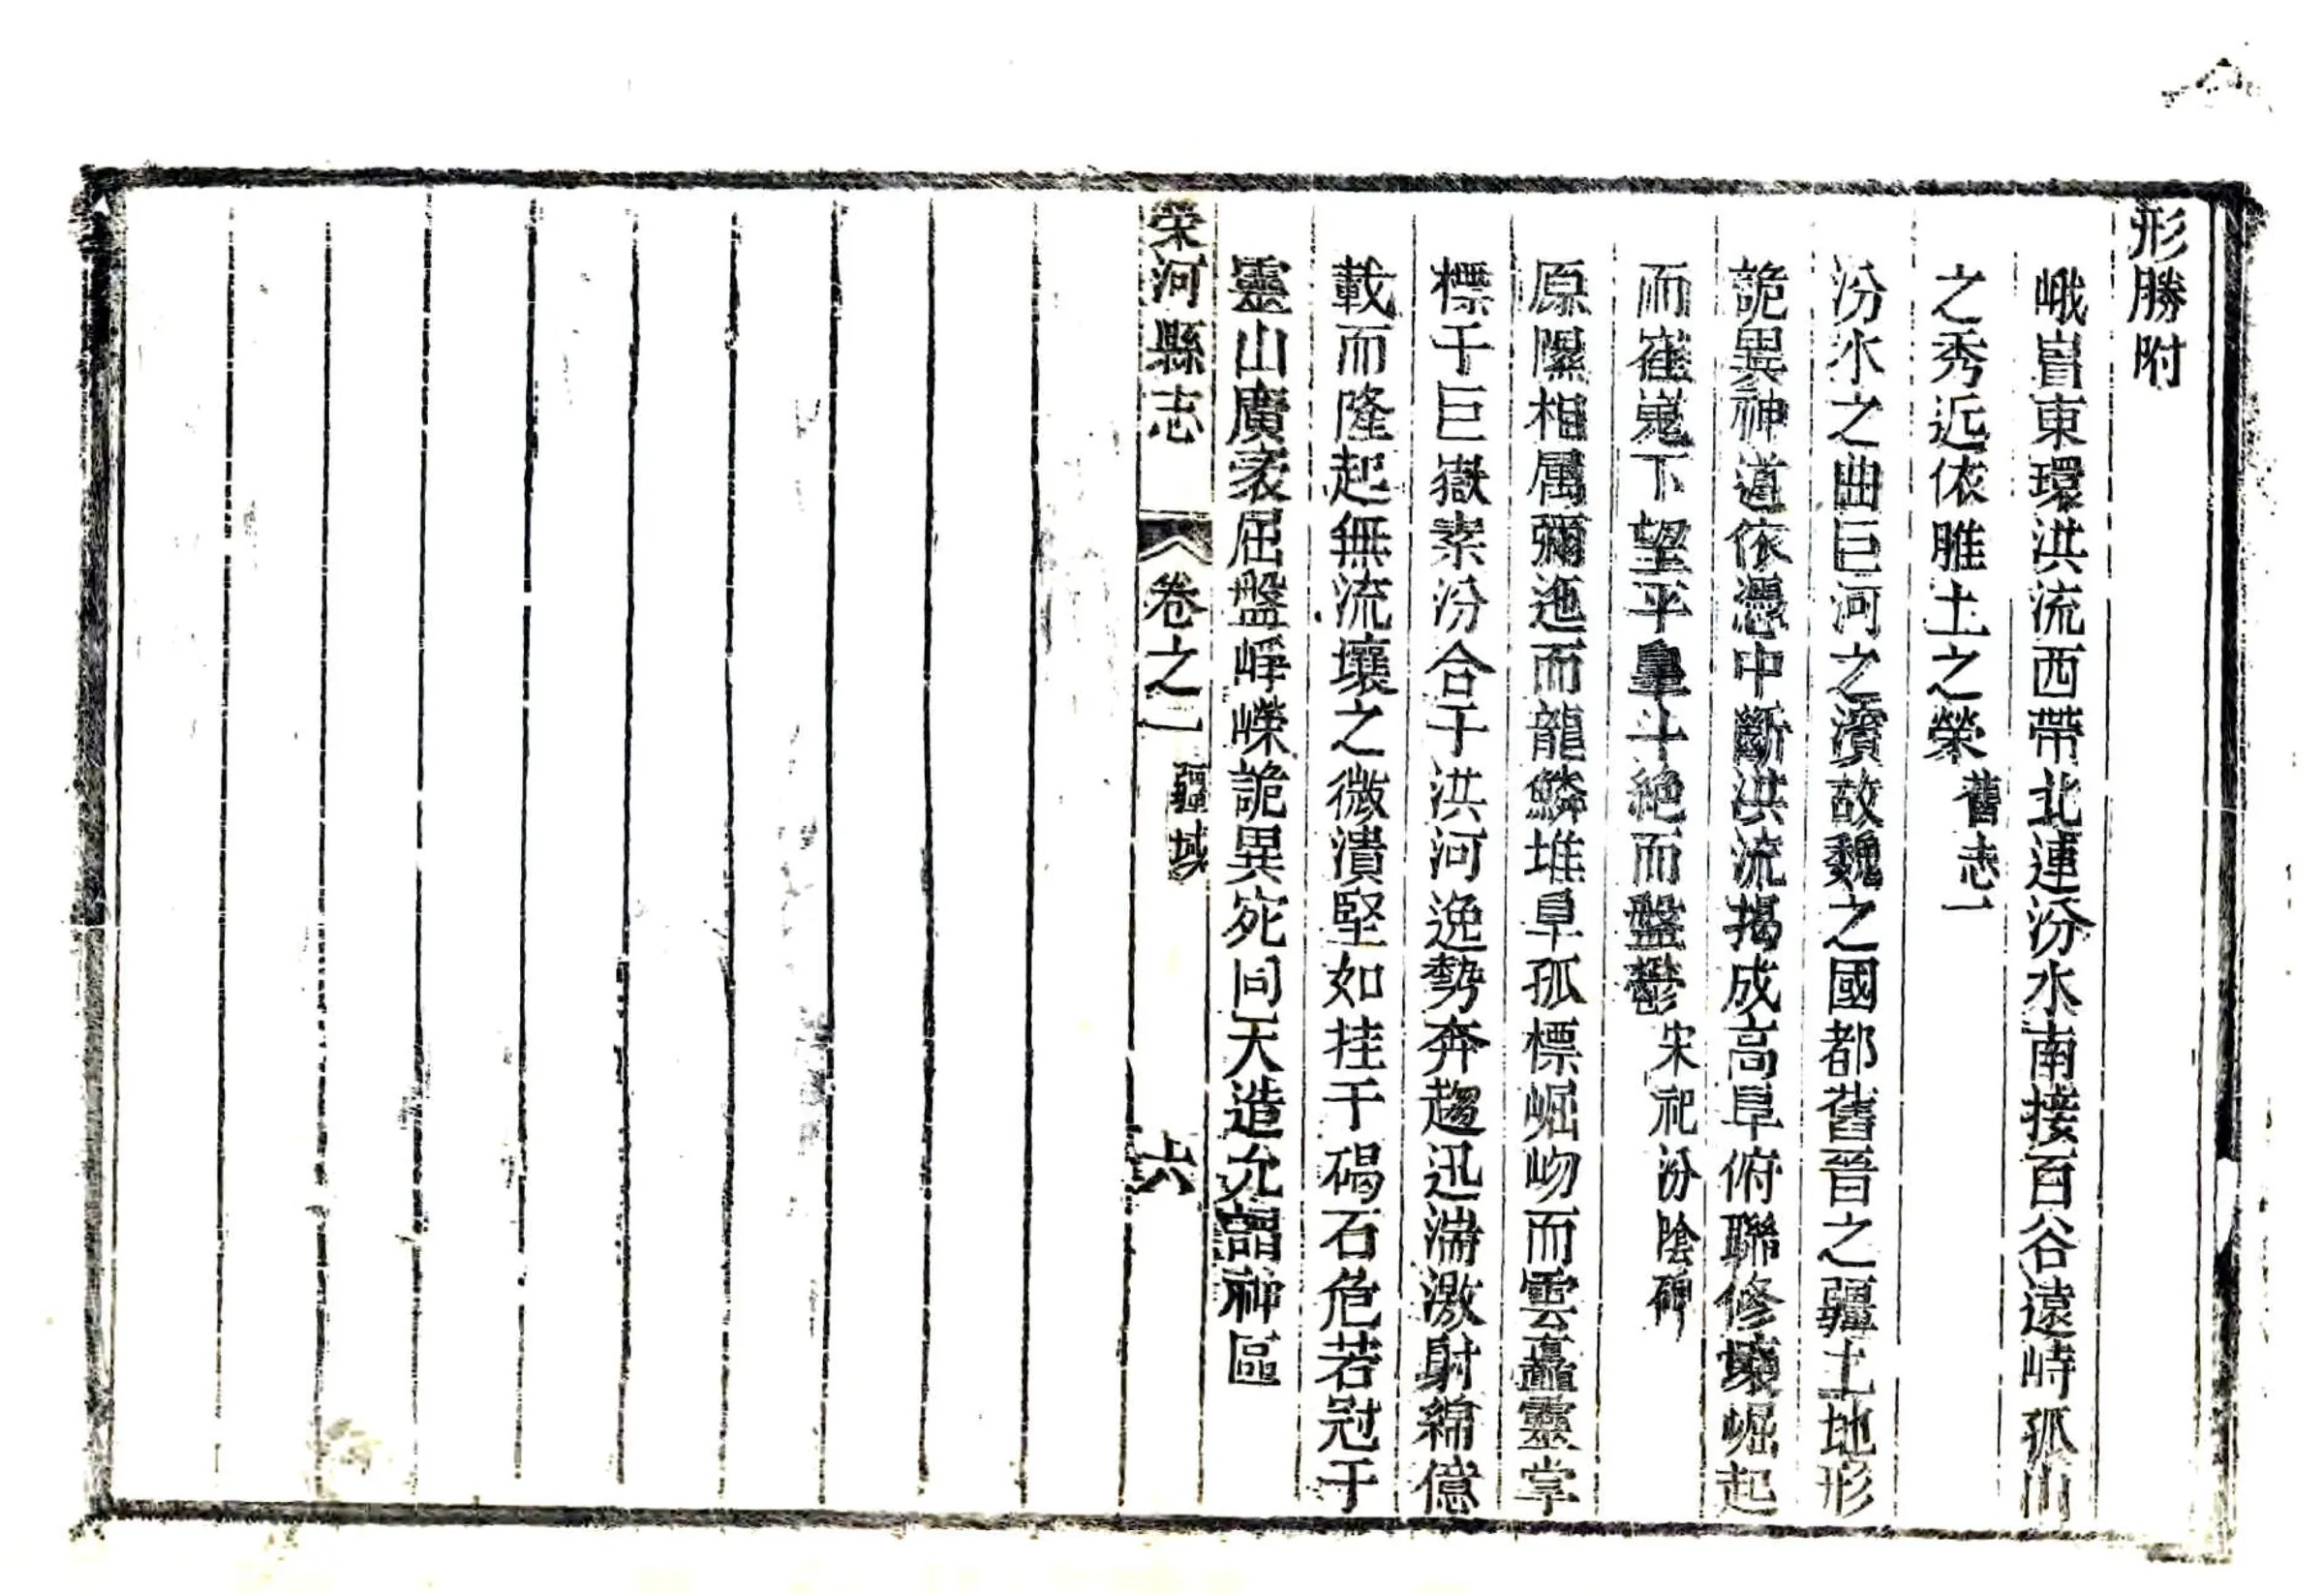 形勝附
峨嵋東環洪流西帶北連汾水南接百谷遠峙孤山
之秀近依脽土之榮舊志一
汾水之曲巨河之濱故魏之國都舊晉之疆土地形
詭異神道依憑中斷洪流揭成高阜俯聯修壤崛起
而崔嵬下望平皐斗絶而盤鬱宋祀汾陰碑
原隰相属彌迤而龍鱗堆阜孤標崛岉而雲矗靈掌
標于巨嶽素汾合于洪河逸勢奔趨迅湍激射綿億
載而隆起無流壤之微潰堅如挂于碣石危若冠于
靈山廣袤屈盤崢嶸詭異宛同天造允謂神區
荣河縣志
卷之一
疆域
六